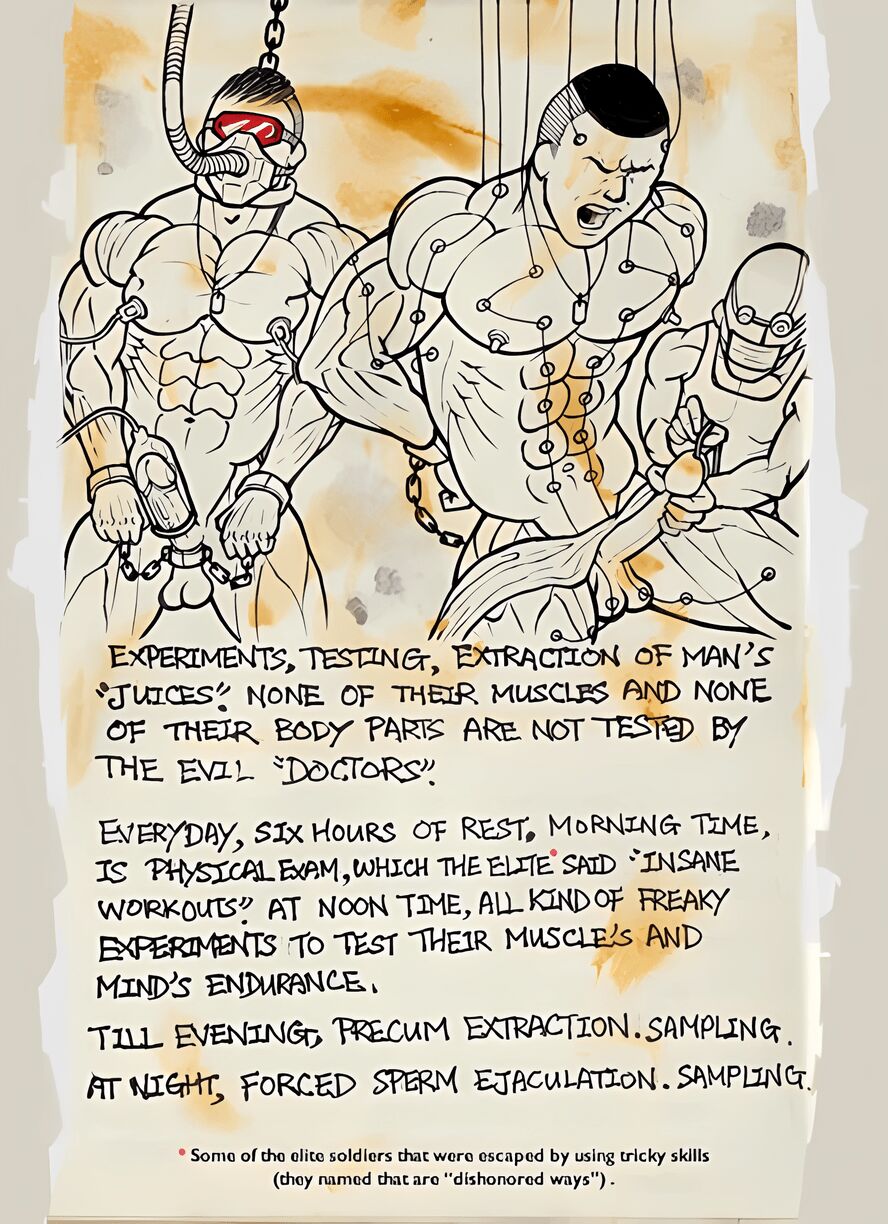 EXPERIMENTS, TESTING, EXTRACTION OF MAN'S
"JUICES". NONE OF THEIR MUSCLES AND NONE
OF THEIR BODY PARTS ARE NOT TESTED BY
THE EVIL "DOCTORS".
EVERYDAY, SIX HOURS OF REST. MORNING TIME,
IS PHYSICAL EXAM, WHICH THE ELITE* SAID "INSANE
WORKOUTS". AT NOON TIME, ALL KIND OF FREAKY
EXPERIMENTS TO TEST THEIR MUSCLE'S AND
MIND'S ENDURANCE.
TILL EVENING, PRECUM EXTRACTION. SAMPLING.
AT NIGHT, FORCED SPERM EJACULATION. SAMPLING.
* Some of the elite soldiers that were escaped by using tricky skills
(they named that are "dishonored ways") .